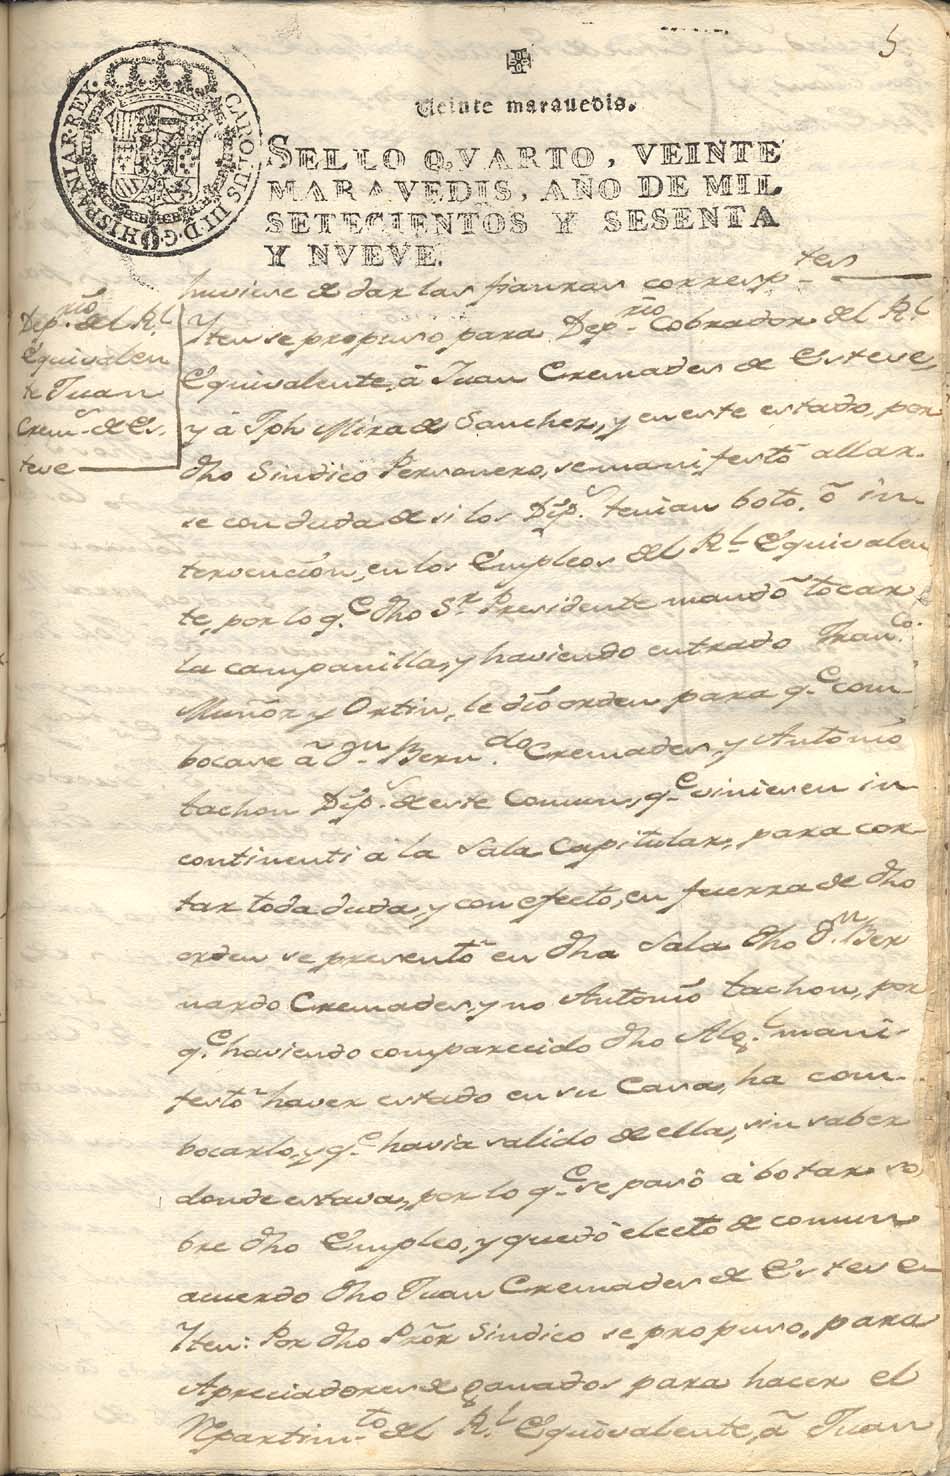 5
Veinte marauedis.
SELLO QVARTO, VEINTE
MARAVEDIS, AÑO DE MIL
SETECIENTOS Y SESENTA
Y NVEVE.
CAROLUS III·D·G·HISPANIAR·REX·
huviese de dar las fianzas corresp.tes
Dep.rio del R.l
Equivalen
te Juan
Crem.s de Es-
teve
Yten se propuso para Dep.rio Cobrador del R.l
Equivalente, â Juan Cremades de Esteve,
y â Jph Mira de Sanchez, y en este estado, por
dho Sindico Personero, se manifestô allar-
se con duda de si los Dip.s tenian boto, ô in-
tervencion, en los Empleos del R.l Equivalen
te, por lo q.e dho S.r Presidente mandô tocar
la campanilla, y haviendo entrado Fran.co
Muñoz y Ortin, le diô orden para q.e com-
bocase â D.n Bern.do Cremades, y Antonio
tachon Dip.s de este Comun, q.e viniesen in
continenti a la Sala Capitular, para cor-
tar toda duda, y con efecto, en fuerza de dho
orden se presentô en dha Sala dho D.n Ber
nardo Cremades, y no Antonio tachon, por
q.e haviendo comparecido dho Alg.l mani-
festô haver estado en su Casa, ha com-
bocarlo, y q.e havia salido de ella, sin saber
donde estava, por lo q.e se pasô â botar so-
bre dho Empleo, y quedô electo de comun
acuerdo dho Juan Cremades de Esteve
Yten: Por dho Pror Sindico se propuso, para
Apreciadores de ganados para hacer el
Repartim.to del R.l Equivalente, â Juan